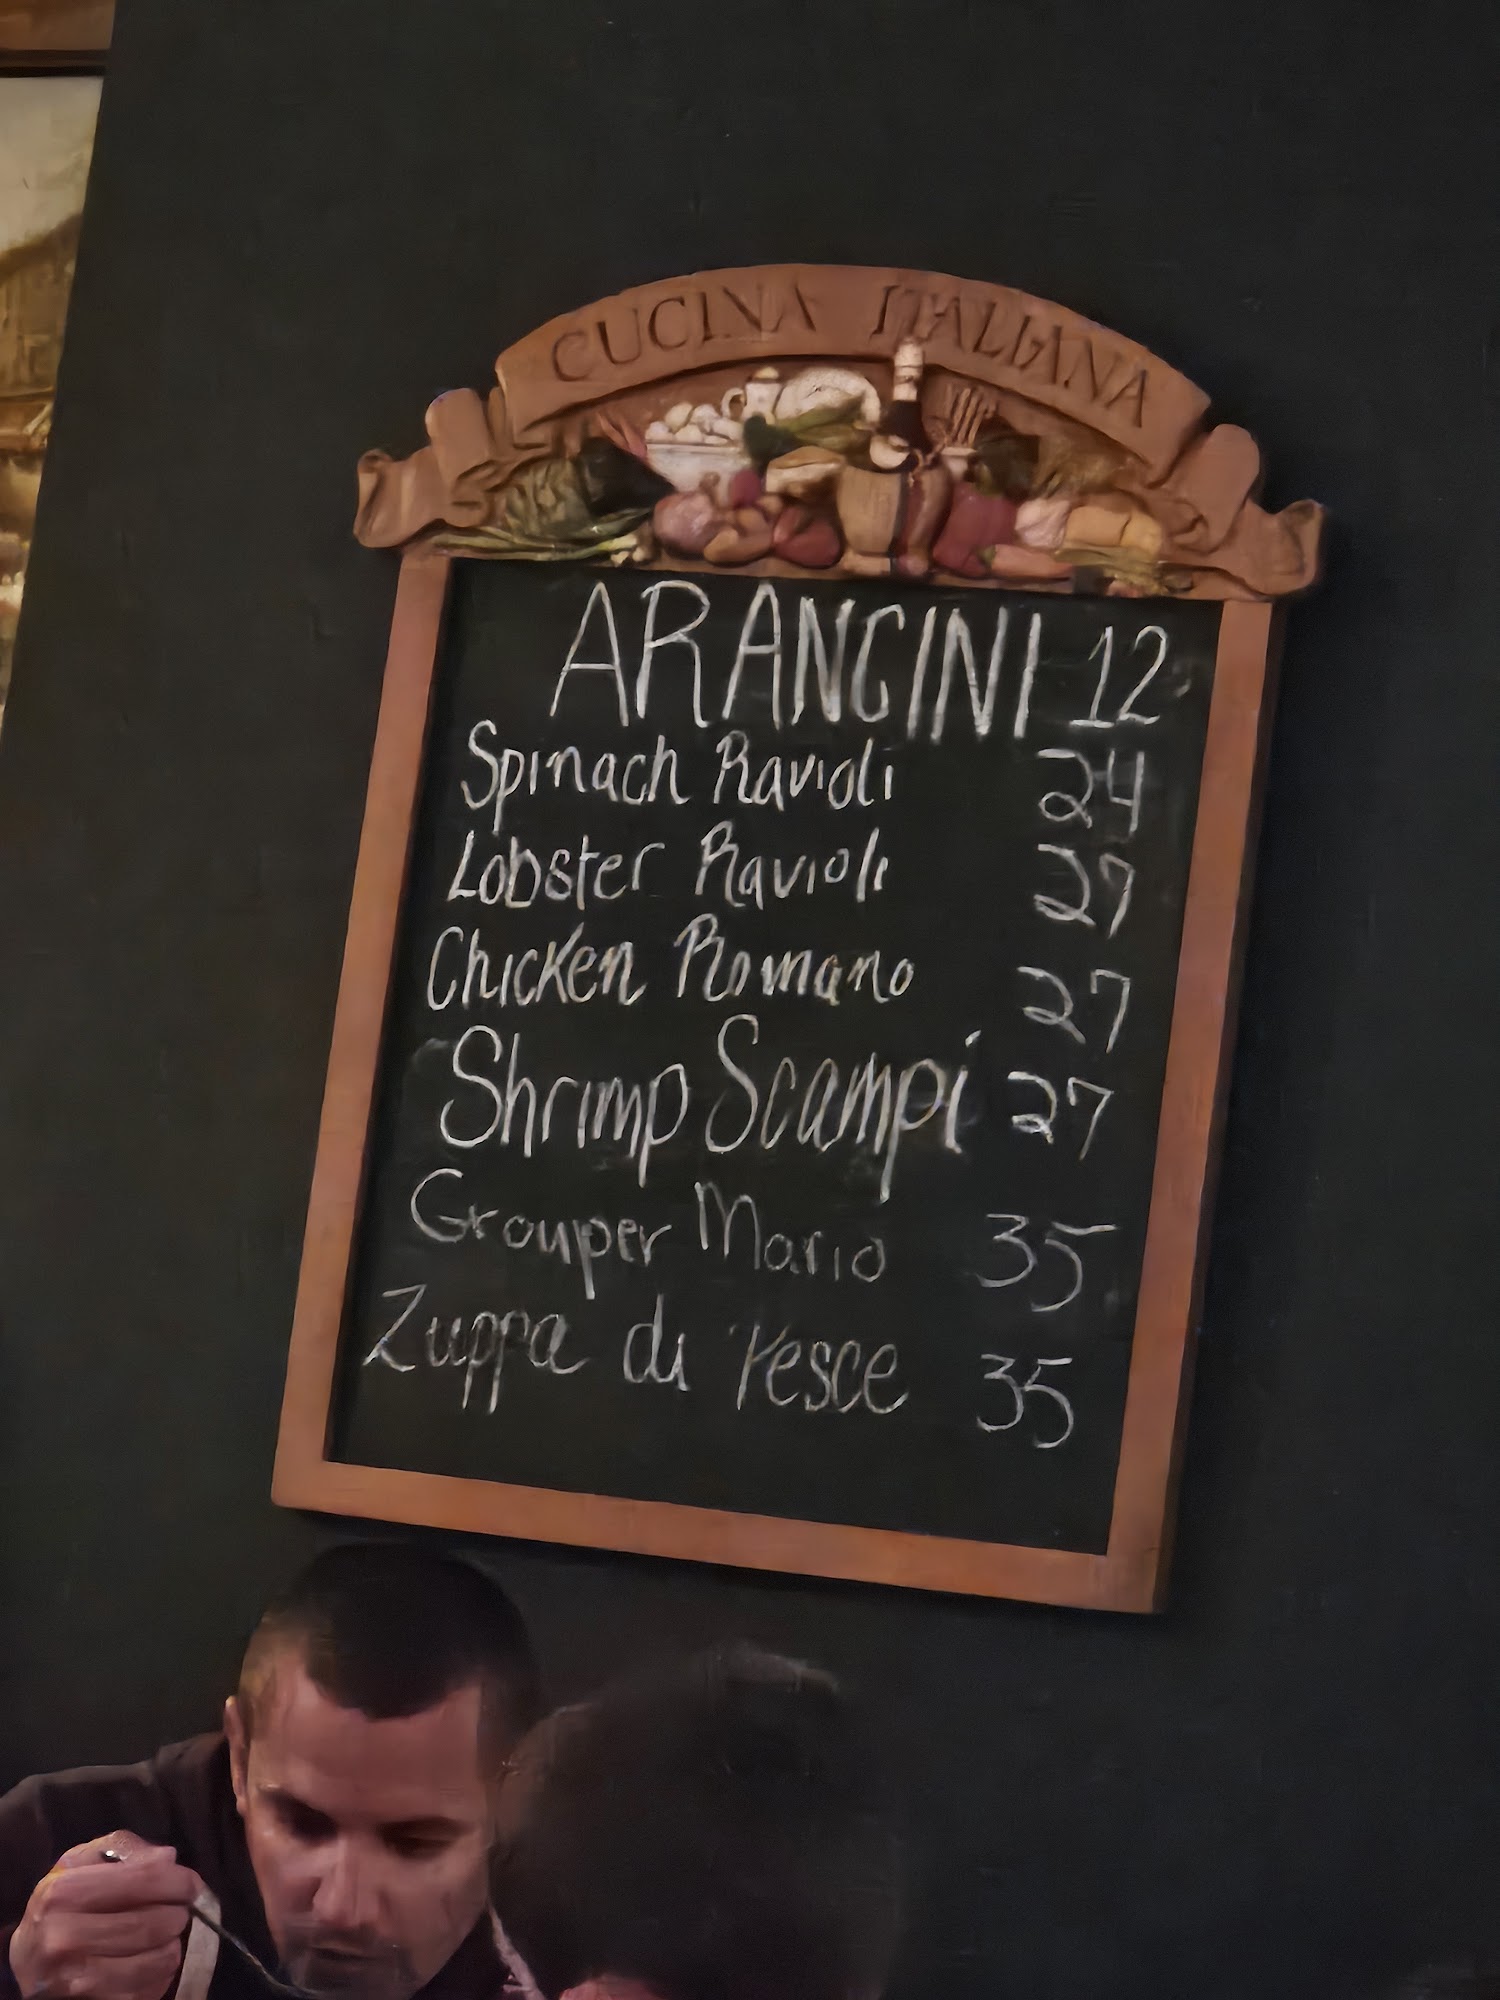 CUCINA ITALIANA
ARANCINI 12
Spinach Ravioli 24
Lobster Ravioli 27
Chicken Romano 27
Shrimp Scampi 27
Grouper Mario 35
Zuppa di Pesce 35